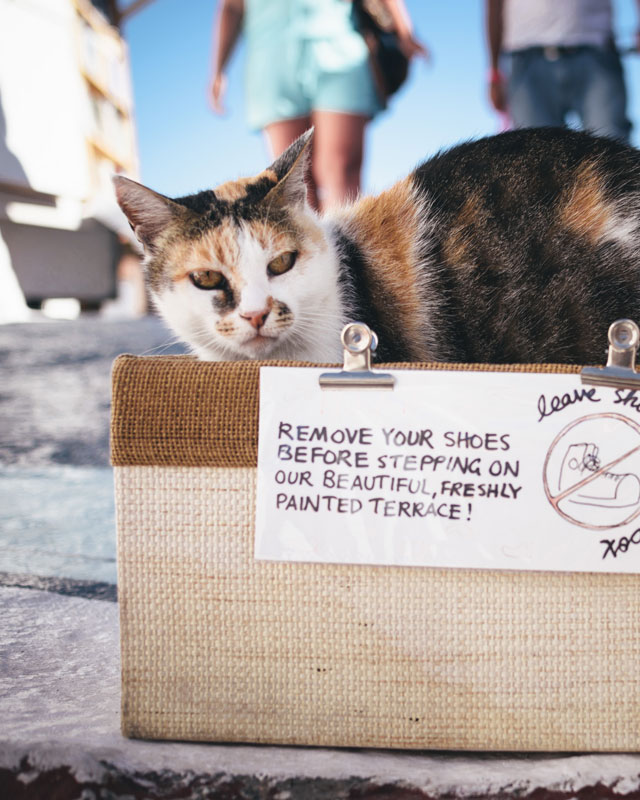 REMOVE YOUR SHOES
BEFORE STEPPING ON
OUR BEAUTIFUL, FRESHLY
PAINTED TERRACE!
leave